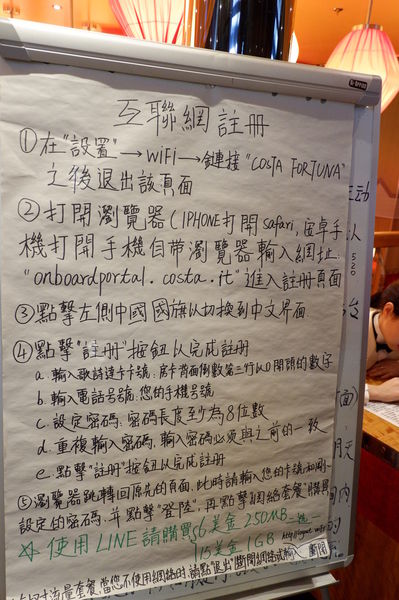 互聯網註冊
①在"設置"→WiFi→鏈接"COSTA FORTUNA"
之後退出該頁面
②打開瀏覽器(IPHONE打開safari,安卓手
機打開手機自帶瀏覽器輸入網址
"onboardportal.costa.it"進入註冊頁面
③點擊左側中國國旗以切換到中文界面
④點擊"註冊"按钮以完成註冊
a.輸入歌詩達卡卡號,房卡背面倒數第三行以0開頭的數字
b.輸入電話號號:您的手機號號
c.設定密碼,密碼長度至少為8位數
d.重複輸入密碼,輸入密碼必须與之前的一致
e.點擊"註冊"按钮以完成註冊
⑤瀏覽器跳轉回原先的頁面,此時請輸入您的卡號和剛
設定的密碼,并點擊"登陸",再點擊"網絡套餐"購買
☆使用LINE請購買56美金250MB
115美金1GB
流量套餐,當您不使用網絡時,請點"退出"斷開網絡或輸入